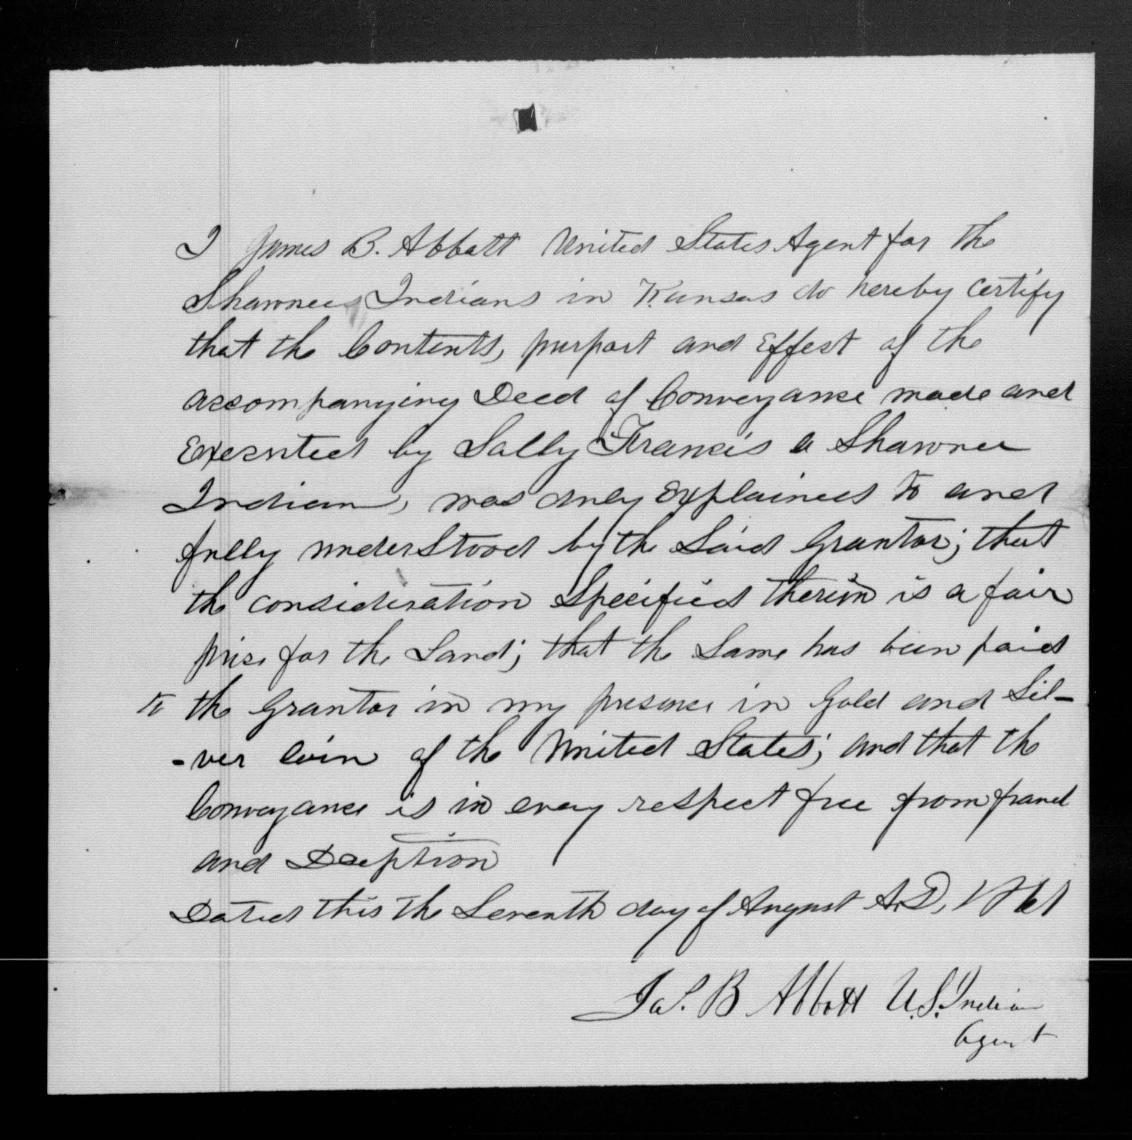 I James B. Abbott United States Agent for the
Shawnees Indians in Kansas do hereby certify
that the Contents, purport and Effect of the
accompanying Deed of Conveyance made and
Executed by Sally Francis a Shawnee
Indian, was duly Explained to and
fully understood by the Said Grantor; that
the consideration Specified therein is a fair
price for the Land; that the Same has been paid
to the Grantor in my presence in Gold and Sil-
-ver Coin of the United States; and that the
Conveyance is in every respect free from fraud
and Deception
Dated this the Seventh day of August A.D. 1861
Jas. B Abbott U.S. Indian
Agent